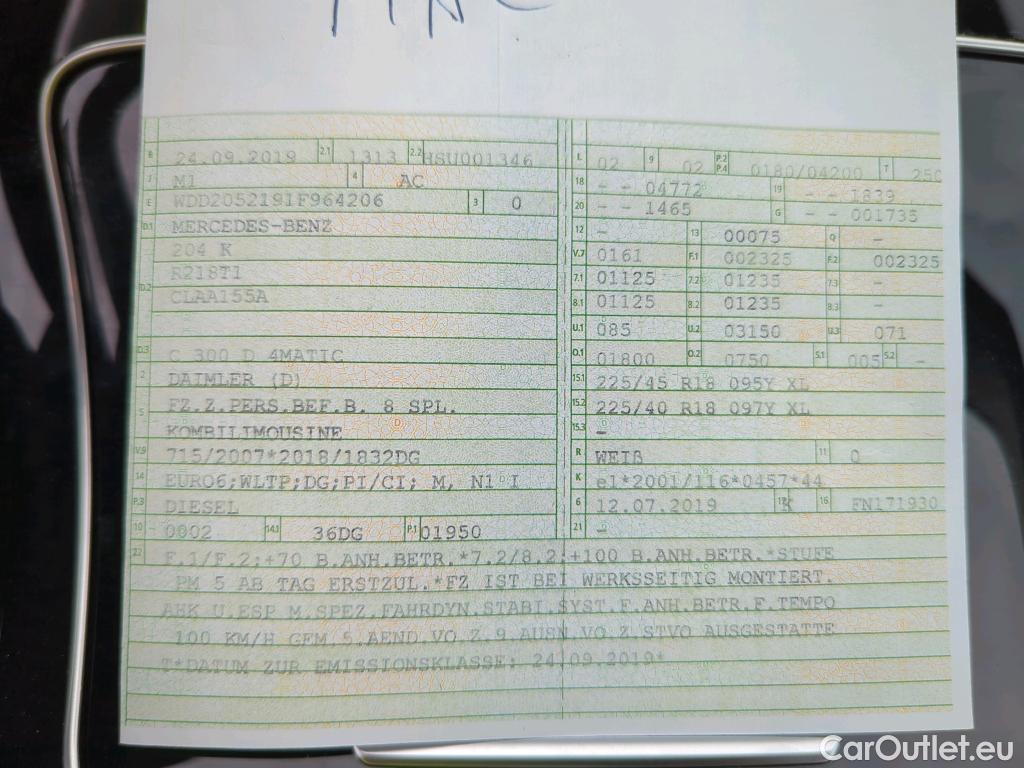 B 24.09.2019 2.1 1313 2.2 HSU001346
J M1 4 AC
E WDD2052191F964206 3 0
D.1 MERCEDES-BENZ
204 K
R218T1
D.2 CLAA155A
D.3 C 300 D 4MATIC
2 DAIMLER (D)
5 FZ.Z.PERS.BEF.B. 8 SPL.
KOMBILIMOUSINE
V.9 715/2007*2018/1832DG
14 EURO6;WLTP;DG;PI/CI; M, N1 I
P.3 DIESEL
10 0002 14.1 36DG P.1 01950
L 02 9 02 P.2 P.4 0180/04200 T 250
18 - - 04772 19 - - 1839
20 - - 1465 G - - 001735
12 - 13 00075 Q -
V.7 0161 F.1 002325 F.2 002325
7.1 01125 7.2 01235 7.3 -
8.1 01125 8.2 01235 8.3 -
U.1 085 U.2 03150 U.3 071
O.1 01800 O.2 0750 S.1 005 S.2 -
15.1 225/45 R18 095Y XL
15.2 225/40 R18 097Y XL
15.3 -
R WEIß 11 0
K e1*2001/116*0457*44
6 12.07.2019 17 K 16 FN171930
21 -
22 F.1/F.2:+70 B.ANH.BETR.*7.2/8.2:+100 B.ANH.BETR.*STUFE
PM 5 AB TAG ERSTZUL.*FZ IST BEI WERKSSEITIG MONTIERT.
AHK U.ESP M.SPEZ.FAHRDYN.STABI.SYST.F.ANH.BETR.F.TEMPO
100 KM/H GEM.5.AEND.VO Z.9.AUSN.VO Z.STVO AUSGESTATTE
T*DATUM ZUR EMISSIONSKLASSE: 24.09.2019*
CarOutlet.eu